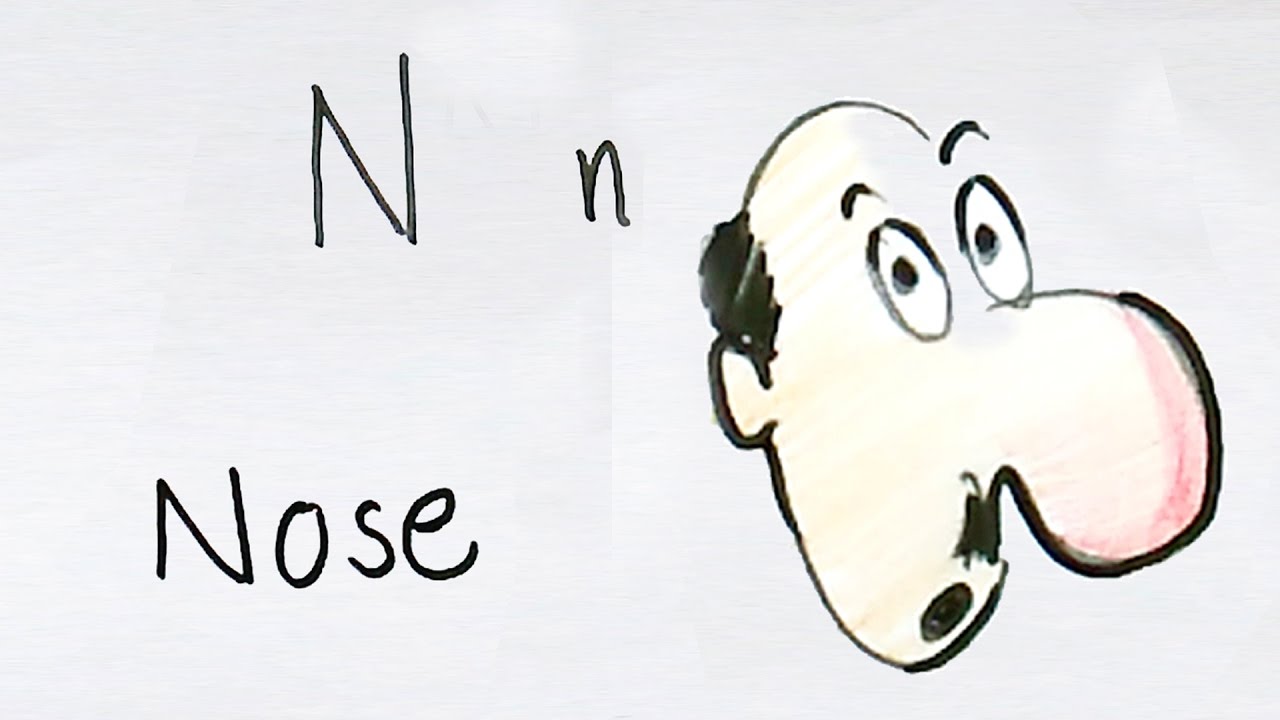 N n
Nose